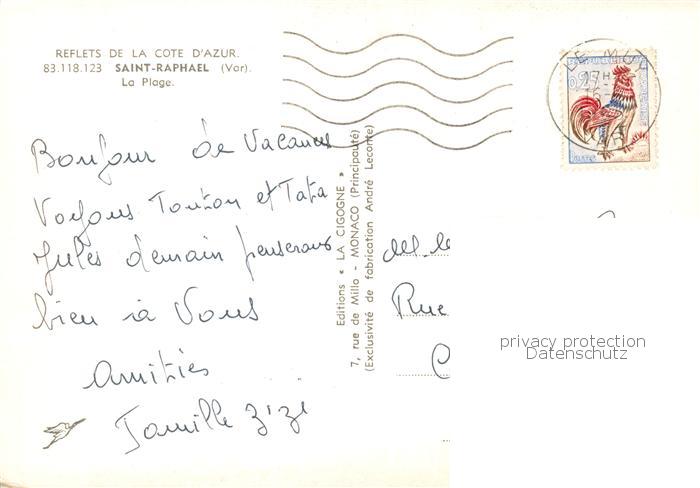 REFLETS DE LA COTE D'AZUR.
83.118.123 SAINT-RAPHAEL (Var).
La Plage.
Bonjour de Vacances
Voyons Tonton et Tata
Jules demain penserons
bien à Vous
Amitiés
Famille Zizi
Editions « LA CIGOGNE »
7, rue de Millo - MONACO (Principauté)
(Exclusivité de fabrication André Leconte)
LE MUY
VAR
0,25
Rue
privacy protection
Datenschutz